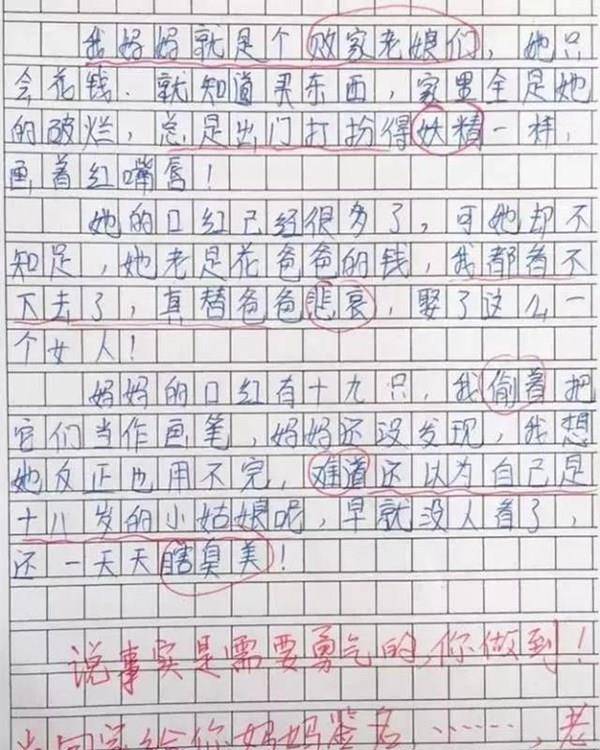 我妈妈就是个败家老娘们，她只
会花钱．就知道买东西，家里全是她
的破烂，总是出门打扮得妖精一样，
画着红嘴唇！
她的口红已经很多了，可她却不
知足，她老是花爸爸的钱，我都看不
下去了，真替爸爸悲哀，娶了这么一
个女人！
妈妈的口红有十九只，我偷着把
它们当作画笔，妈妈还没发现，我想
她反正也用不完，难道还以为自己是
十八岁的小姑娘呢，早就没人看了，
还一天天瞎臭美！
说事实是需要勇气的，你做到！
给你妈妈签名，……，老